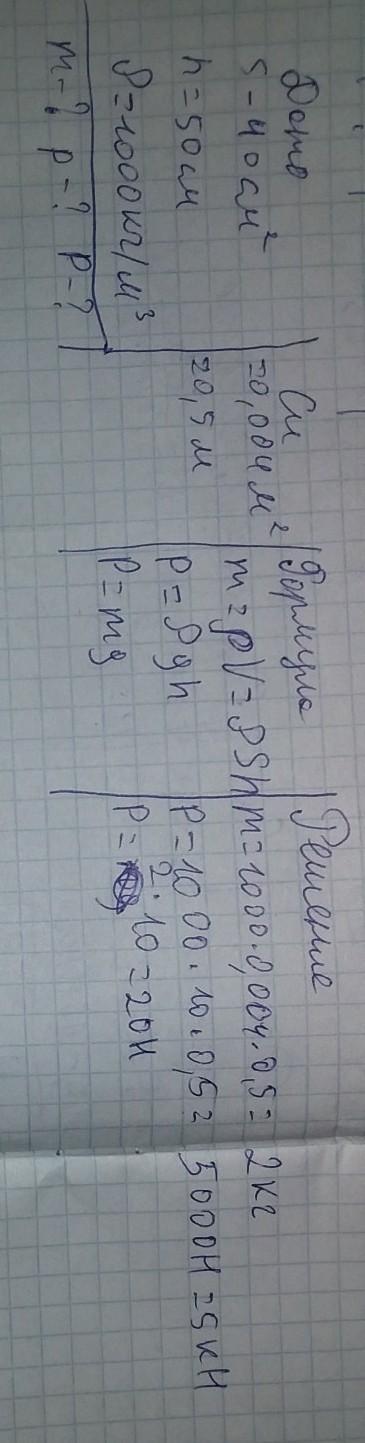 Дано
S - 40 см²
h = 50 см
ρ = 1000 кг/м³
m - ? p - ? P - ?
Си
= 0,004 м²
= 0,5 м
Формула
m = ρV = ρSh
p = ρgh
P = mg
Решение
m = 1000 · 0,004 · 0,5 = 2 кг
p = 1000 · 10 · 0,5 = 5000Н = 5 кН
P = 2 · 10 = 20Н